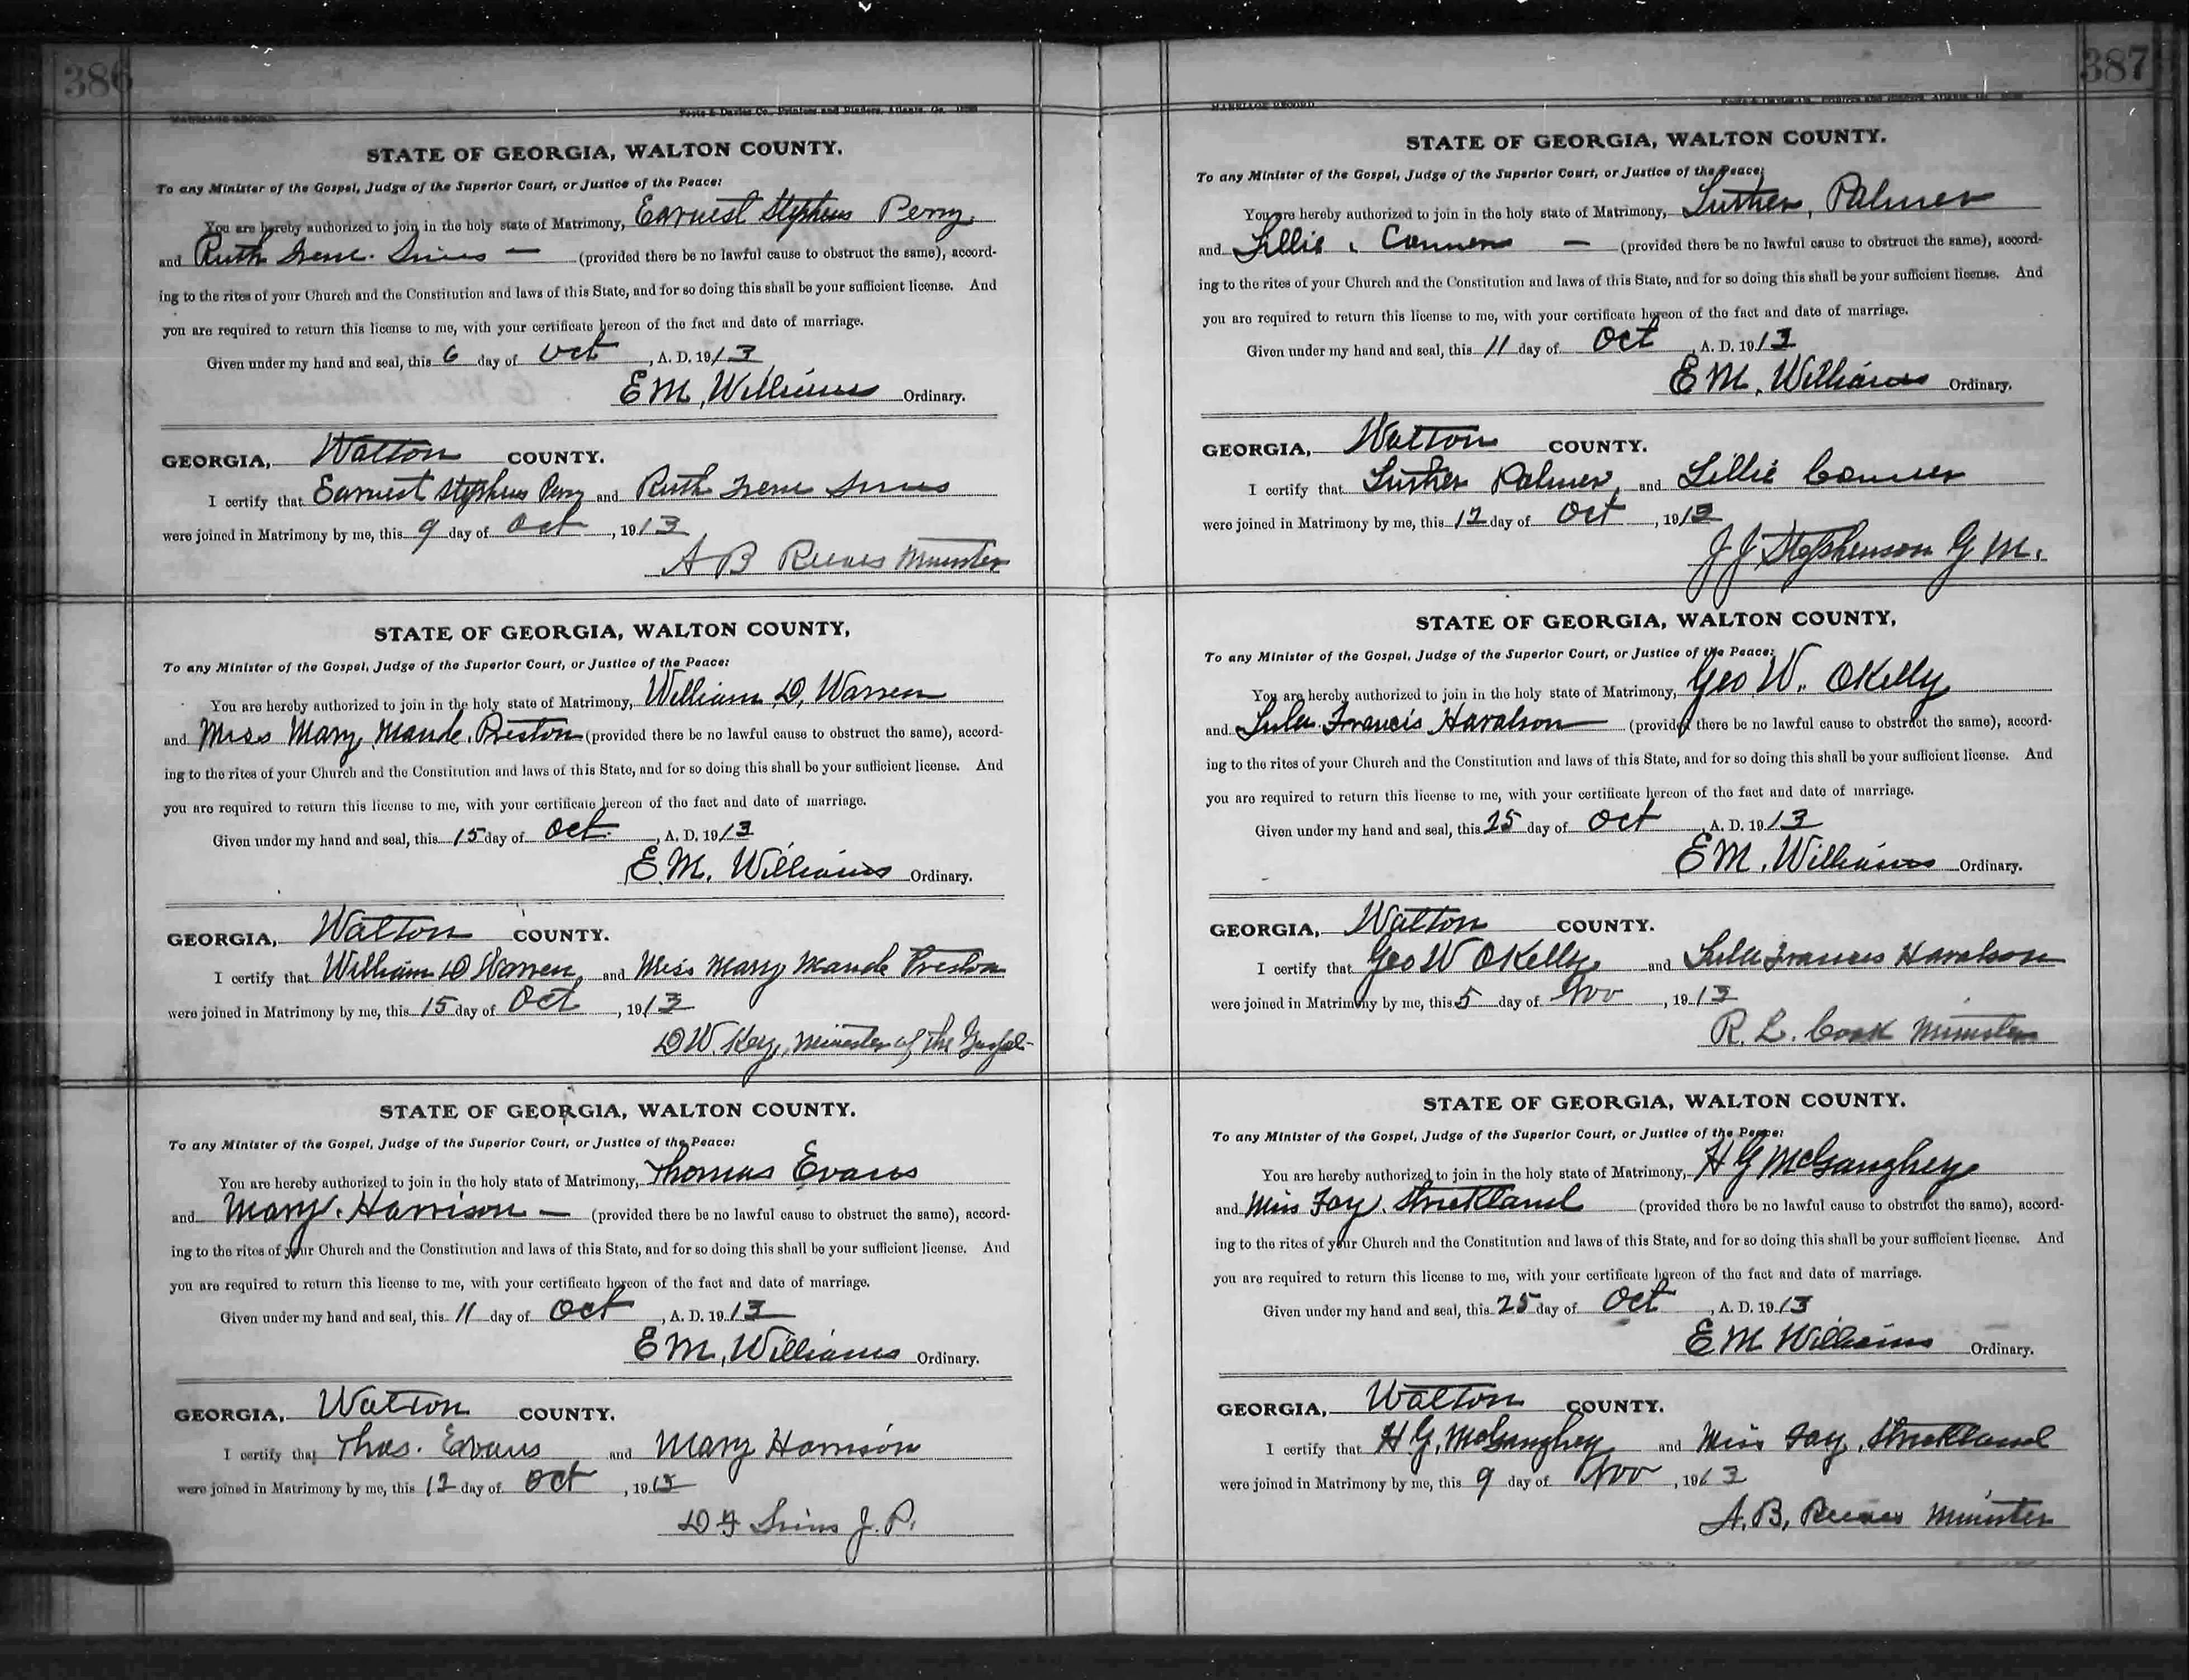 386
MARRIAGE RECORD
Foote & Davies Co., Printers and Binders, Atlanta, Ga.
STATE OF GEORGIA, WALTON COUNTY.
To any Minister of the Gospel, Judge of the Superior Court, or Justice of the Peace:
You are hereby authorized to join in the holy state of Matrimony, Earnest Stephens Perry
and Ruth Irene Sims — (provided there be no lawful cause to obstruct the same), accord-
ing to the rites of your Church and the Constitution and laws of this State, and for so doing this shall be your sufficient license. And
you are required to return this license to me, with your certificate hereon of the fact and date of marriage.
Given under my hand and seal, this 6 day of Oct, A. D. 1913
E M, Williams Ordinary.
GEORGIA, Walton COUNTY.
I certify that Earnest Stephens Perry and Ruth Irene Sims
were joined in Matrimony by me, this 9 day of Oct, 1913
A B Reeves Minister
STATE OF GEORGIA, WALTON COUNTY,
To any Minister of the Gospel, Judge of the Superior Court, or Justice of the Peace:
You are hereby authorized to join in the holy state of Matrimony, William D, Warren
and Miss Mary Maude Preston (provided there be no lawful cause to obstruct the same), accord-
ing to the rites of your Church and the Constitution and laws of this State, and for so doing this shall be your sufficient license. And
you are required to return this license to me, with your certificate hereon of the fact and date of marriage.
Given under my hand and seal, this 15 day of Oct., A. D. 1913
E. M. Williams Ordinary.
GEORGIA, Walton COUNTY.
I certify that William D Warren, and Miss Mary Maude Preston
were joined in Matrimony by me, this 15 day of Oct, 1913
D W. Key, Minister of the Gospel
STATE OF GEORGIA, WALTON COUNTY.
To any Minister of the Gospel, Judge of the Superior Court, or Justice of the Peace:
You are hereby authorized to join in the holy state of Matrimony, Thomas Evans
and Mary. Harrison — (provided there be no lawful cause to obstruct the same), accord-
ing to the rites of your Church and the Constitution and laws of this State, and for so doing this shall be your sufficient license. And
you are required to return this license to me, with your certificate hereon of the fact and date of marriage.
Given under my hand and seal, this 11 day of Oct, A. D. 1913
E M, Williams Ordinary.
GEORGIA, Walton COUNTY.
I certify that Thos. Evans and Mary Harrison
were joined in Matrimony by me, this 12 day of Oct, 1913
Sims J. P.
387
MARRIAGE RECORD
STATE OF GEORGIA, WALTON COUNTY.
To any Minister of the Gospel, Judge of the Superior Court, or Justice of the Peace:
You are hereby authorized to join in the holy state of Matrimony, Luther, Palmer
and Lillie Conner — (provided there be no lawful cause to obstruct the same), accord-
ing to the rites of your Church and the Constitution and laws of this State, and for so doing this shall be your sufficient license. And
you are required to return this license to me, with your certificate hereon of the fact and date of marriage.
Given under my hand and seal, this 11 day of Oct, A. D. 1913
E M. Williams Ordinary.
GEORGIA, Walton COUNTY.
I certify that Luther Palmer, and Lillie Conner
were joined in Matrimony by me, this 12 day of Oct, 1913
J J Stephenson G M.
STATE OF GEORGIA, WALTON COUNTY,
To any Minister of the Gospel, Judge of the Superior Court, or Justice of the Peace:
You are hereby authorized to join in the holy state of Matrimony, Geo W. OKelly
and Lula Francis Haralson (provided there be no lawful cause to obstruct the same), accord-
ing to the rites of your Church and the Constitution and laws of this State, and for so doing this shall be your sufficient license. And
you are required to return this license to me, with your certificate hereon of the fact and date of marriage.
Given under my hand and seal, this 25 day of Oct, A. D. 1913
E M. Williams Ordinary.
GEORGIA, Walton COUNTY.
I certify that Geo W OKelly, and Lula Frances Haralson
were joined in Matrimony by me, this 5 day of Nov, 1913
R. L. Cook Minister
STATE OF GEORGIA, WALTON COUNTY.
To any Minister of the Gospel, Judge of the Superior Court, or Justice of the Peace:
You are hereby authorized to join in the holy state of Matrimony, H G McGaughey
and Miss Fay. Strickland (provided there be no lawful cause to obstruct the same), accord-
ing to the rites of your Church and the Constitution and laws of this State, and for so doing this shall be your sufficient license. And
you are required to return this license to me, with your certificate hereon of the fact and date of marriage.
Given under my hand and seal, this 25 day of Oct, A. D. 1913
E M Williams Ordinary.
GEORGIA, Walton COUNTY.
I certify that H G, McGaughey and Miss Fay, Strickland
were joined in Matrimony by me, this 9 day of Nov, 1913
A. B, Reeves Minister